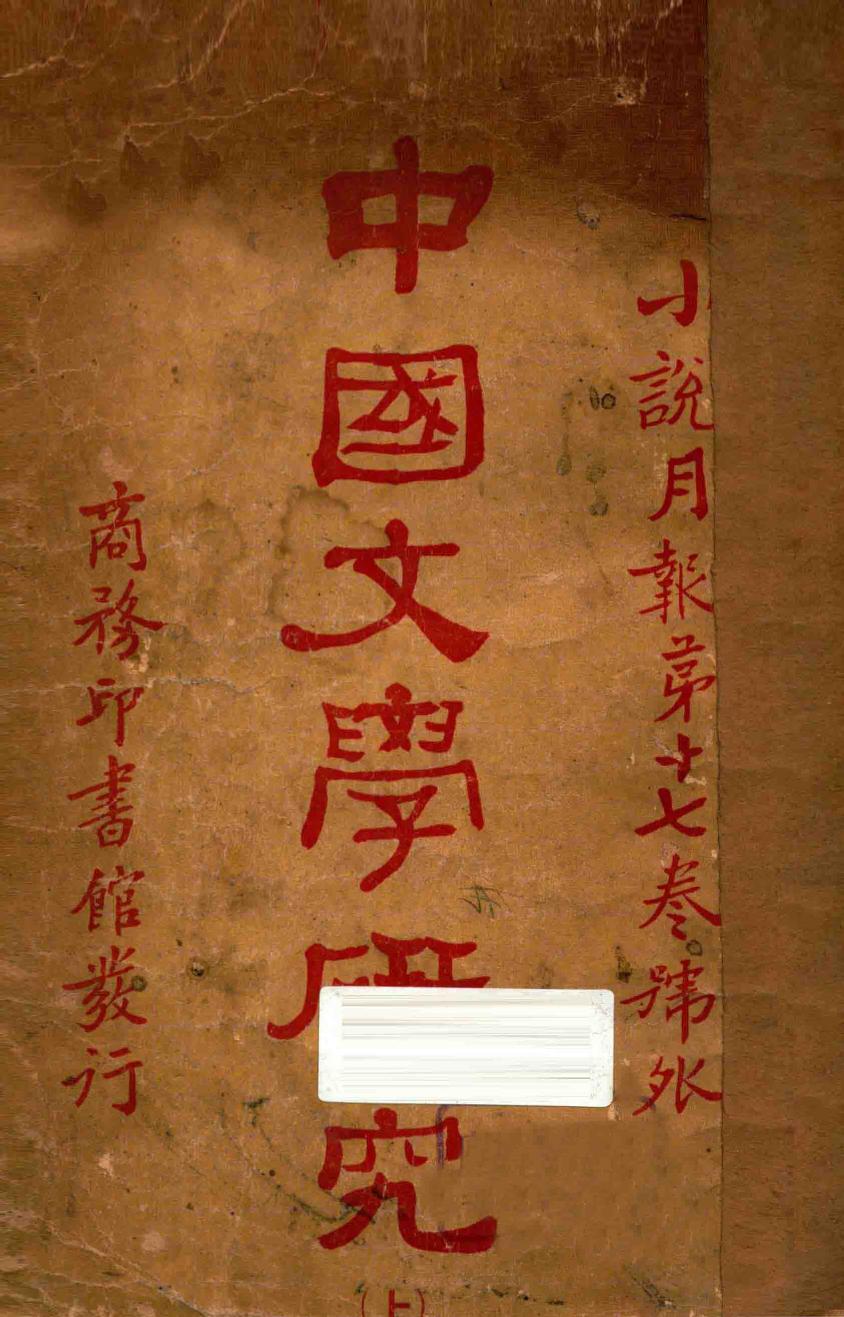 小說月報第十七卷號外
中國文學研究
（上）
商務印書館發行